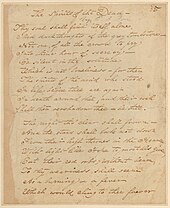 The Spirits of the Dead —
Thy soul shall find itself alone
'Mid dark thoughts of the grey tomb-stone
Not one of all the crowd to pry
Into thine hour of secrecy:
Be silent in that solitude
Which is not loneliness — for then
The spirits of the dead who stood
In life before thee are again
In death around thee, and their will
Shall overshadow thee: be still
The night tho' clear shall frown —
And the stars shall look not down
From their high thrones in the Heaven
With light like Hope to mortals given
But their red orbs without beam
To thy weariness shall seem
As a burning & a fever
Which would cling to thee forever